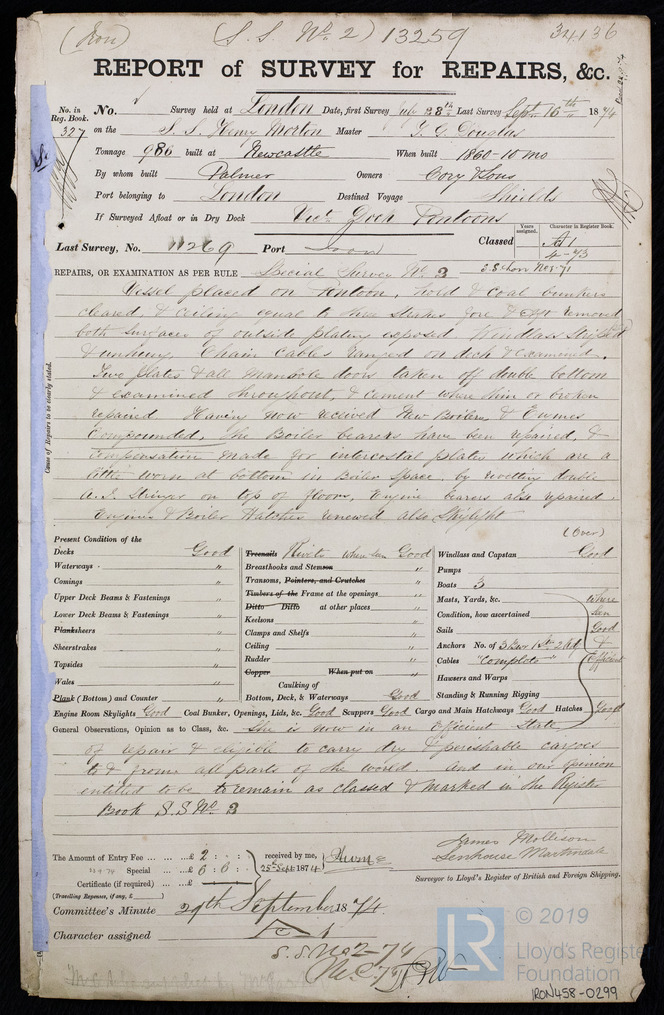 (Iron) (S.S. No. 2) 13259 34136
REPORT of SURVEY for REPAIRS, &c.
No. in Reg. Book. 327
No. Survey held at London Date, first Survey July 28th Last Survey Sept. 16th 1874
on the S.S. Henry Morton Master G. O. Douglas
Tonnage 986 built at Newcastle When built 1860-10 mo
By whom built Palmer Owners Cory & Sons
Port belonging to London Destined Voyage Shields
If Surveyed Afloat or in Dry Dock Vict. Dock Pontoons
Last Survey, No. 11269 Port Lon Classed
Years assigned. Character in Register Book.
A1
4-73
REPAIRS, OR EXAMINATION AS PER RULE Special Survey No. 3 SS Lon Nov. 71
Vessel placed on Pontoon, hold & coal bunkers
cleared, & ceiling equal to three strakes fore & aft removed
both surfaces of outside plating exposed Windlass stripped
& unhung, Chain Cables ranged on deck & examined.
Two plates & all manhole doors taken off double bottom
& examined throughout, & cement where thin or broken
repaired Having now received New Boilers, & Engines
Compounded, the Boiler bearers have been repaired, &
compensation made for intercostal plates which are a
little worn at bottom in Boiler space, by rivetting double
A. I. Stringer on top of floors, Engine bearers also repaired.
Engine & Boiler Hatches renewed also Skylight
(Over)
Cause of Repairs to be clearly stated.
Present Condition of the
Decks Good
Waterways "
Comings "
Upper Deck Beams & Fastenings "
Lower Deck Beams & Fastenings "
Planksheers "
Sheerstrakes "
Topsides "
Wales "
Plank (Bottom) and Counter "
Treenails Rivets where seen Good
Breasthooks and Stemson "
Transoms, Pointers, and Crutches "
Timbers of the Frame at the openings "
Ditto Ditto at other places "
Keelsons "
Clamps and Shelfs "
Ceiling "
Rudder "
Copper When put on
Caulking of
Bottom, Deck, & Waterways Good
Windlass and Capstan Good
Pumps "
Boats 3 "
Masts, Yards, &c.
Condition, how ascertained
Sails
Anchors No. of 3 Bow 1 St. 2 Ked
Cables "Complete"
Hawsers and Warps
Standing & Running Rigging
where
seen
Good
&
Efficient
Engine Room Skylights Good Coal Bunker, Openings, Lids, &c. Good Scuppers Good Cargo and Main Hatchways Good Hatches Good
General Observations, Opinion as to Class, &c. She is now in an Efficient State
of repair & eligible to carry dry & perishable cargoes
to & from all parts of the world. And in our opinion
entitled to be to remain as classed & marked in the Register
Book S.S No. 3
James Mollison
Senhouse Martindale
Surveyor to Lloyd's Register of British and Foreign Shipping.
The Amount of Entry Fee ... ... £ 2 : :
Special ... £ 6 : 6 :
Certificate (if required) ... £
(Travelling Expenses, if any, £ )
received by me,
25th Sept. 1874
Committee's Minute 29th September 1874.
Character assigned
S.S. No 2-74
M.C. 74
© 2019
LR
Lloyd's Register
Foundation
IRON458-0299